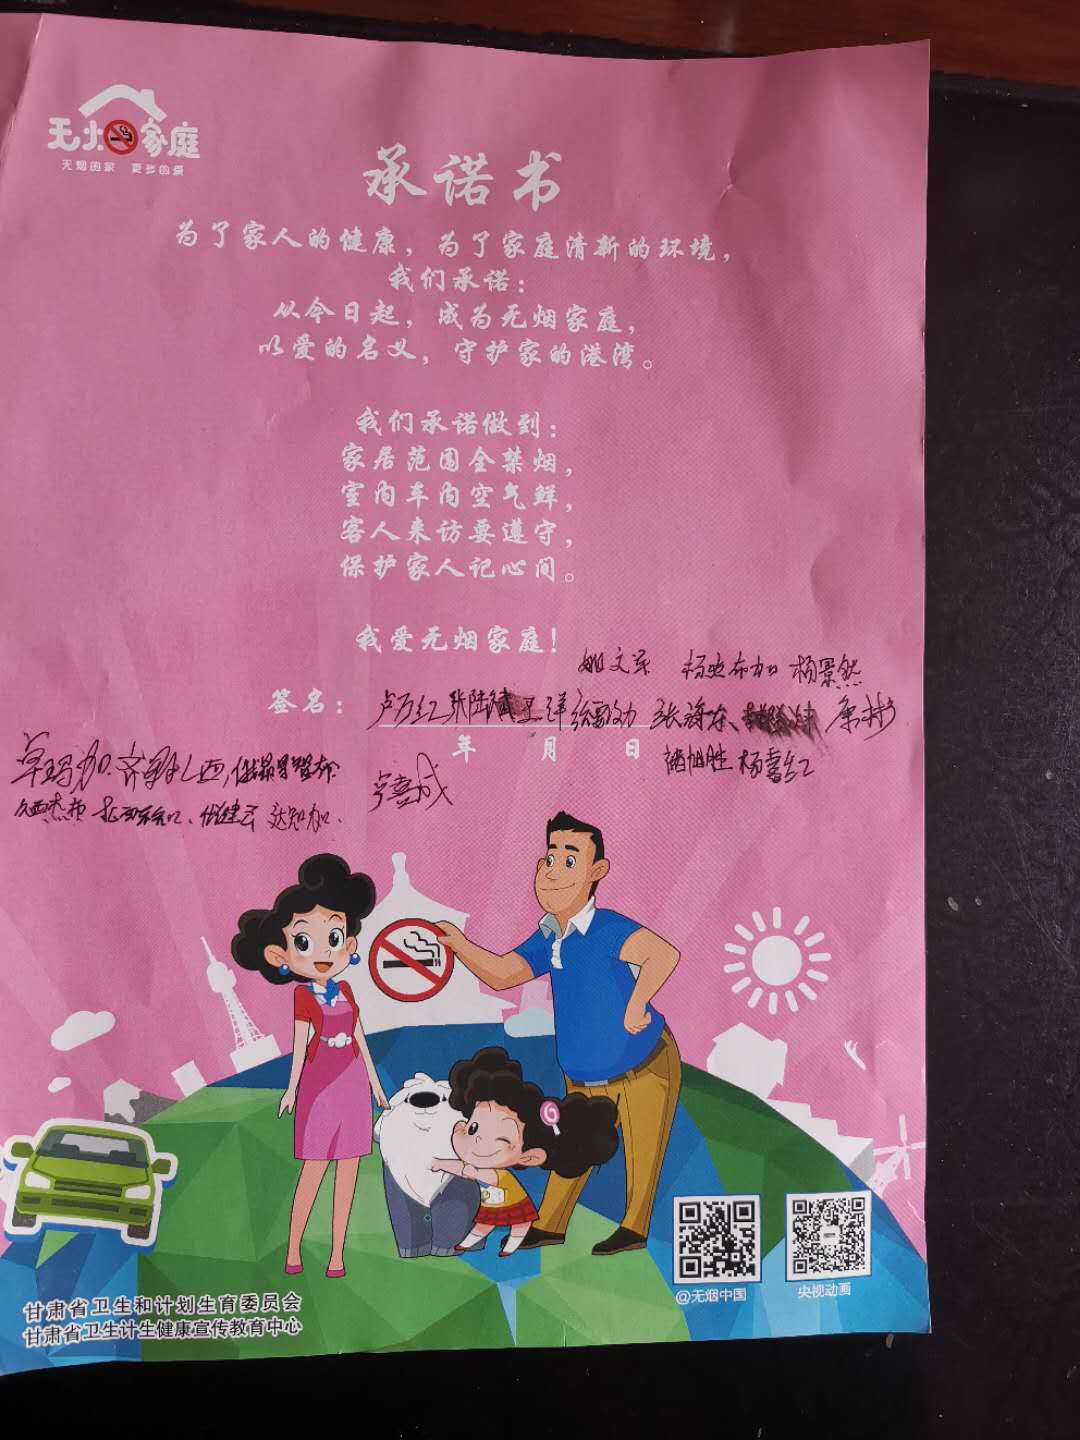 无烟家庭
无烟的家 更多的爱
承诺书
为了家人的健康，为了家庭清新的环境，
我们承诺：
从今日起，成为无烟家庭，
以爱的名义，守护家的港湾。
我们承诺做到：
家居范围全禁烟，
室内车内空气鲜，
客人来访要遵守，
保护家人记心间。
我爱无烟家庭！
姚文军 杨景然
签名： 卢万红 张海东、
年 月 日
褚旭胜 杨喜红
卓玛加
卢喜成
@无烟中国
央视动画
甘肃省卫生和计划生育委员会
甘肃省卫生计生健康宣传教育中心